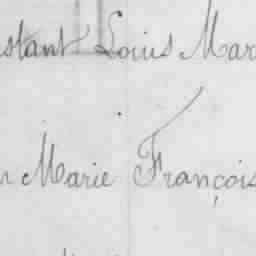 stant Louis Mar
n Marie François